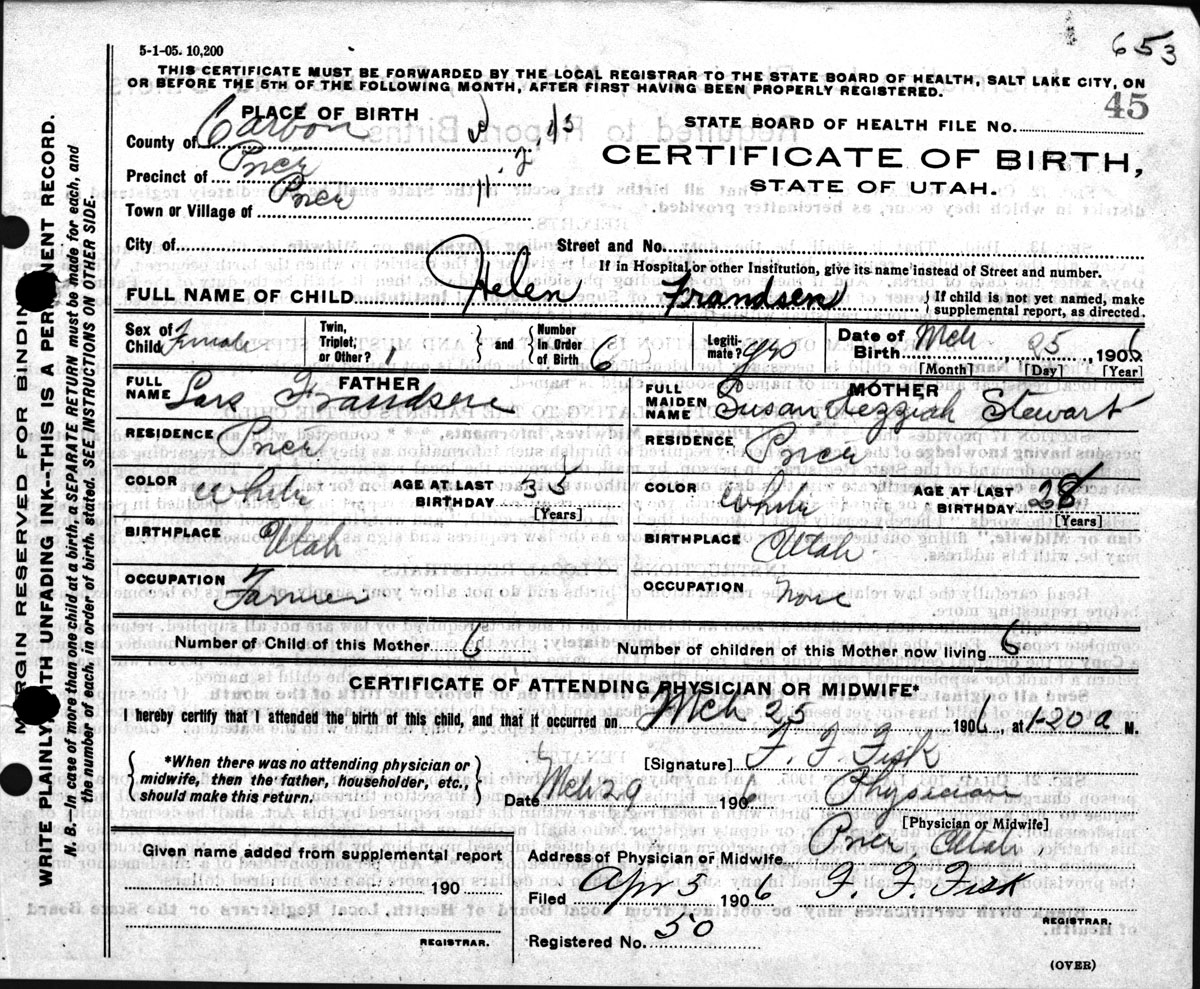 653
5-1-05. 10,200
THIS CERTIFICATE MUST BE FORWARDED BY THE LOCAL REGISTRAR TO THE STATE BOARD OF HEALTH, SALT LAKE CITY, ON
OR BEFORE THE 5TH OF THE FOLLOWING MONTH, AFTER FIRST HAVING BEEN PROPERLY REGISTERED.
45
PLACE OF BIRTH
STATE BOARD OF HEALTH FILE NO.
County of Carbon
CERTIFICATE OF BIRTH,
STATE OF UTAH.
Precinct of Price
Town or Village of Price
City of Street and No.
If in Hospital or other Institution, give its name instead of Street and number.
FULL NAME OF CHILD Helen Frandsen { If child is not yet named, make supplemental report, as directed.
Sex of Child Female Twin, Triplet, or Other? 1 } and { Number in Order of Birth 6 Legitimate? yes Date of Birth Mch 25, 1906
[Month] [Day] [Year]
FATHER
MOTHER
FULL NAME Lars Frandsen
FULL MAIDEN NAME Susan Kezziah Stewart
RESIDENCE Price
RESIDENCE Price
COLOR White AGE AT LAST BIRTHDAY 33
[Years]
COLOR White AGE AT LAST BIRTHDAY 28
[Years]
BIRTHPLACE Utah
BIRTHPLACE Utah
OCCUPATION Farmer
OCCUPATION None
Number of Child of this Mother 6 Number of children of this Mother now living 6
CERTIFICATE OF ATTENDING PHYSICIAN OR MIDWIFE*
I hereby certify that I attended the birth of this child, and that it occurred on Mch 25 1906, at 1-20 a M.
{ *When there was no attending physician or
midwife, then the father, householder, etc.,
should make this return. }
[Signature] F. F. Fisk
Date Mch 29 1906 Physician
[Physician or Midwife]
Given name added from supplemental report
190
REGISTRAR.
Address of Physician or Midwife Price, Utah
Filed Apr 5 1906 F. F. Fisk
REGISTRAR.
Registered No. 50
(OVER)
MARGIN RESERVED FOR BINDING
WRITE PLAINLY WITH UNFADING INK--THIS IS A PERMANENT RECORD.
N. B.—In case of more than one child at a birth, a SEPARATE RETURN must be made for each, and
the number of each, in order of birth, stated. SEE INSTRUCTIONS ON OTHER SIDE.